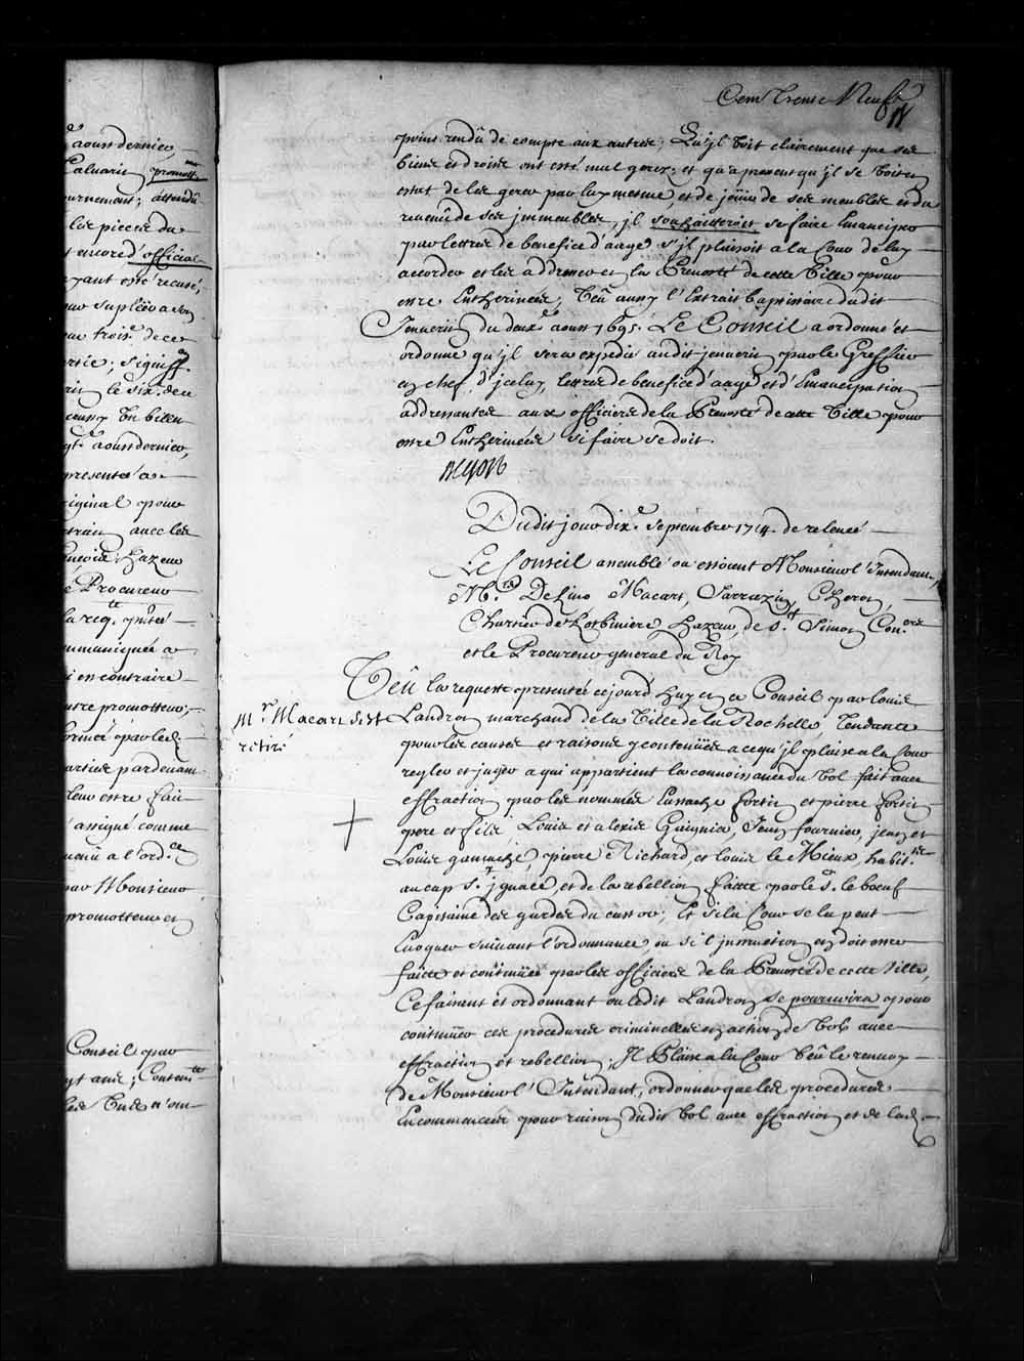 aoust dernier,
Calvarin promott
urnement; attendu
les pieces du
encore d'official
ayant esté recusé,
our supléer a son
trois.e de ce
signiff.
le six.e du
un billet
aoust dernier,
presenté a
riginal pour
avec les
hazeur
Procureur
la req.te p̄ntée
mmuniquée a
en contraire
tre promotteur,
ormée par led.
parties pardevant
leur estre fait
assigné comme
venu a l'ord.ce
par Monsieur
promotteur et
Conseil par
gt ans; Contenant
les vues n'ont
Cent Trente Neuf
point rendu de compte aux autres; Qu'jl voit clairement que ses
biens et droits ont esté mal gerez; et qu'a present qu'jl se voit en
estat de les gerer par luy mesme et de joüir de ses meubles et du
revenu de ses jmmeubles, jl souhaitteroit se faire Emanciper
par lettres de benefice d'aage s'jl plaisoit a la Cour de luy
accorder et les addresser en la Prevosté de cette Ville pour
estre Entherinées, Veu aussy l'Extrait baptistaire dudit
Jeuverin du deux.e aoust 1695. Le Conseil a ordonné et
ordonne qu'jl sera expedié audit jeuverin par le Greffier
en chef d'jceluy, lettres de benefice d'aage et d'Emancipation
addressantes aux officiers de la Prevosté de cette Ville pour
estre Entherinées si faire se doit.
Begon
Dudit jour dix.e septembre 1714. de relevée
Le Conseil assemblé ou estoient Monsieur l'Intendant,
M.rs Delino Macart, Sarrazin, Cheron,
Chartier de Lotbiniere, hazeur, de S.t Simon Con.ers
et le Procureur general du Roy
Veu la requeste presentée cejourd'huy en ce Conseil par louis
Mr. Macart s'est
retiré
Landron marchand de la Ville de la Rochelle, Tendante
pour les causes et raisons y contenües a ce qu'jl plaise a la Cour
regler et juger a qui appartient la connoissance du vol fait avec
effraction par les nommés Eustache fortin et pierre fortin
pere et fils Louis et alexis Gaignier, Jean fournier, jean et
Louis gamache, pierre Richard, et louis le Mieux, habit.ns
au cap S.t jgnace, et de la rebellion faitte par le S.r le boeuf
Capitaine des gardes du castor; Et si la Cour se la peut
Evoquer suivant l'ordonnance, ou si l'jnstruction en doit estre
faitte et continüée par les officiers de la Prevosté de cette Ville,
Ce faisant et ordonnant ou ledit Landron se pourvoira pour
continüer ces procedures criminelles en action de vols avec
effraction et rebellion; Jl Plaise a la Cour veu le renvoy
de Monsieur l'Intendant, ordonner que les procedures
Encommencées pour raison dudit vol avec effraction et de lad.